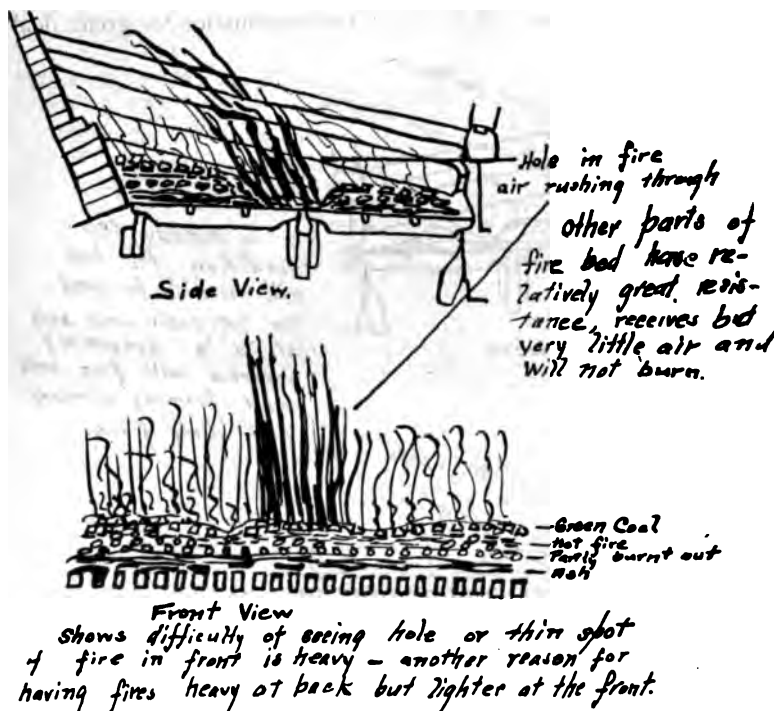 Hole in fire
air rushing through
other parts of
fire bed have re-
latively great resis-
tance, receives but
very little air and
will not burn.
Side View.
Green Coal
Hot fire
Partly burnt out
Ash
Front View
Shows difficulty of seeing hole or thin spot
if fire in front is heavy - another reason for
having fires heavy at back but lighter at the front.